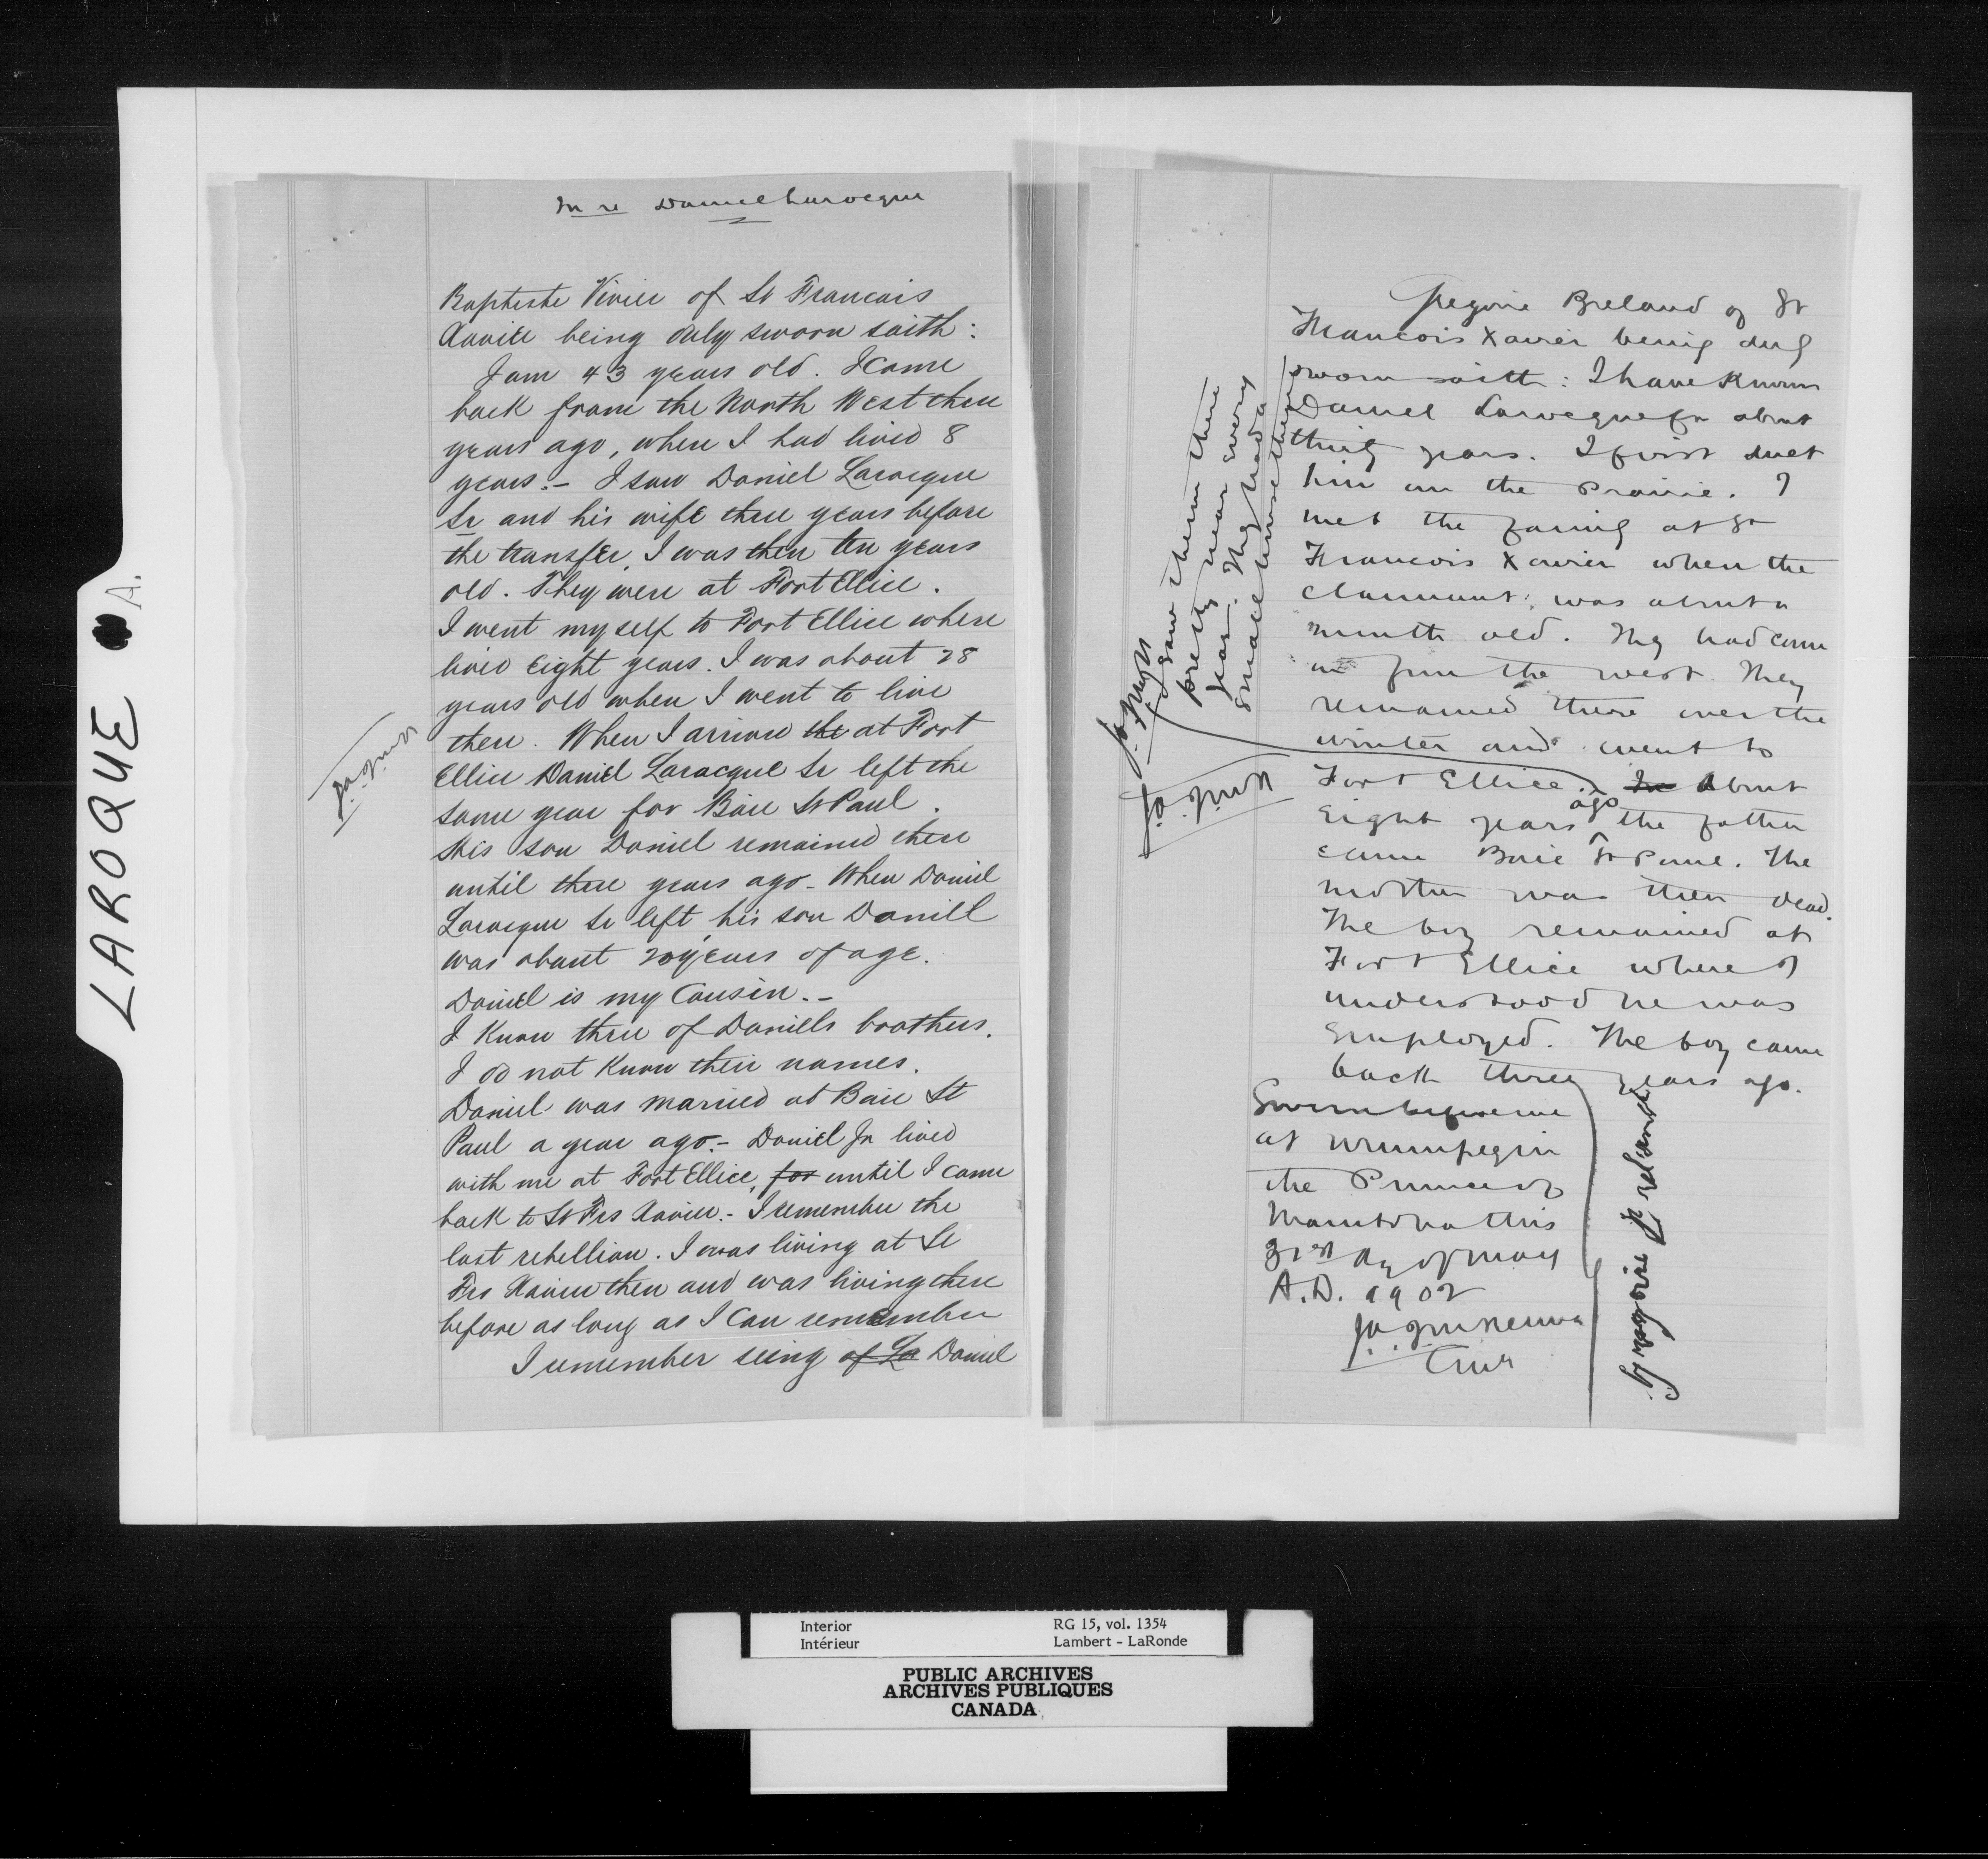 LAROQUE A.
In re Daniel Larocque
Baptiste Vivier of St Francais
Xavier being duly sworn saith:
I am 43 years old. I came
back from the North West three
years ago, where I had lived 8
years. - I saw Daniel Larocque
Sr and his wife three years before
the transfer, I was then ten years
old. They were at Fort Ellice.
I went myself to Fort Ellice where
lived eight years. I was about 28
years old when I went to live
there. When I arrived the at Fort
Ellice Daniel Larocque Sr left the
same year for Baie St Paul.
His son Daniel remained there
until three years ago - When Daniel
Larocque Sr left his son Daniel
was about 20 years of age.
Daniel is my Cousin. -
I know three of Daniels brothers.
I do not know their names.
Daniel was married at Baie St
Paul a year ago. - Daniel Jr lived
with me at Fort Ellice, for until I came
back to St Frs Xavier. - I remember the
last rebellion. I was living at St
Frs Xavier then and was living there
before as long as I can remember
I remember seeing of La Daniel
Gregoire Breland of St
Francois Xavier being duly
sworn saith: I have known
Daniel Larocque for about
thirty years. I first met
him on the Prairie. I
met the family at St
Francois Xavier when the
claimant was about a
month old. They had come
in from the west. They
remained there over the
winter and went to
Fort Ellice. In About
eight years ago the father
came Baie St Paul. The
mother was then dead.
The boy remained at
Fort Ellice where I
understood he was
employed. The boy came
back three years ago.
I saw them there
pretty near every
year. They had a
small house there
Sworn before me
at Winnipeg in
the Province of
Manitoba this
31st day of May
A.D. 1902
J.A.J. McKenna
Gregoire Breland
Interior
Intérieur
RG 15, vol. 1354
Lambert - LaRonde
PUBLIC ARCHIVES
ARCHIVES PUBLIQUES
CANADA